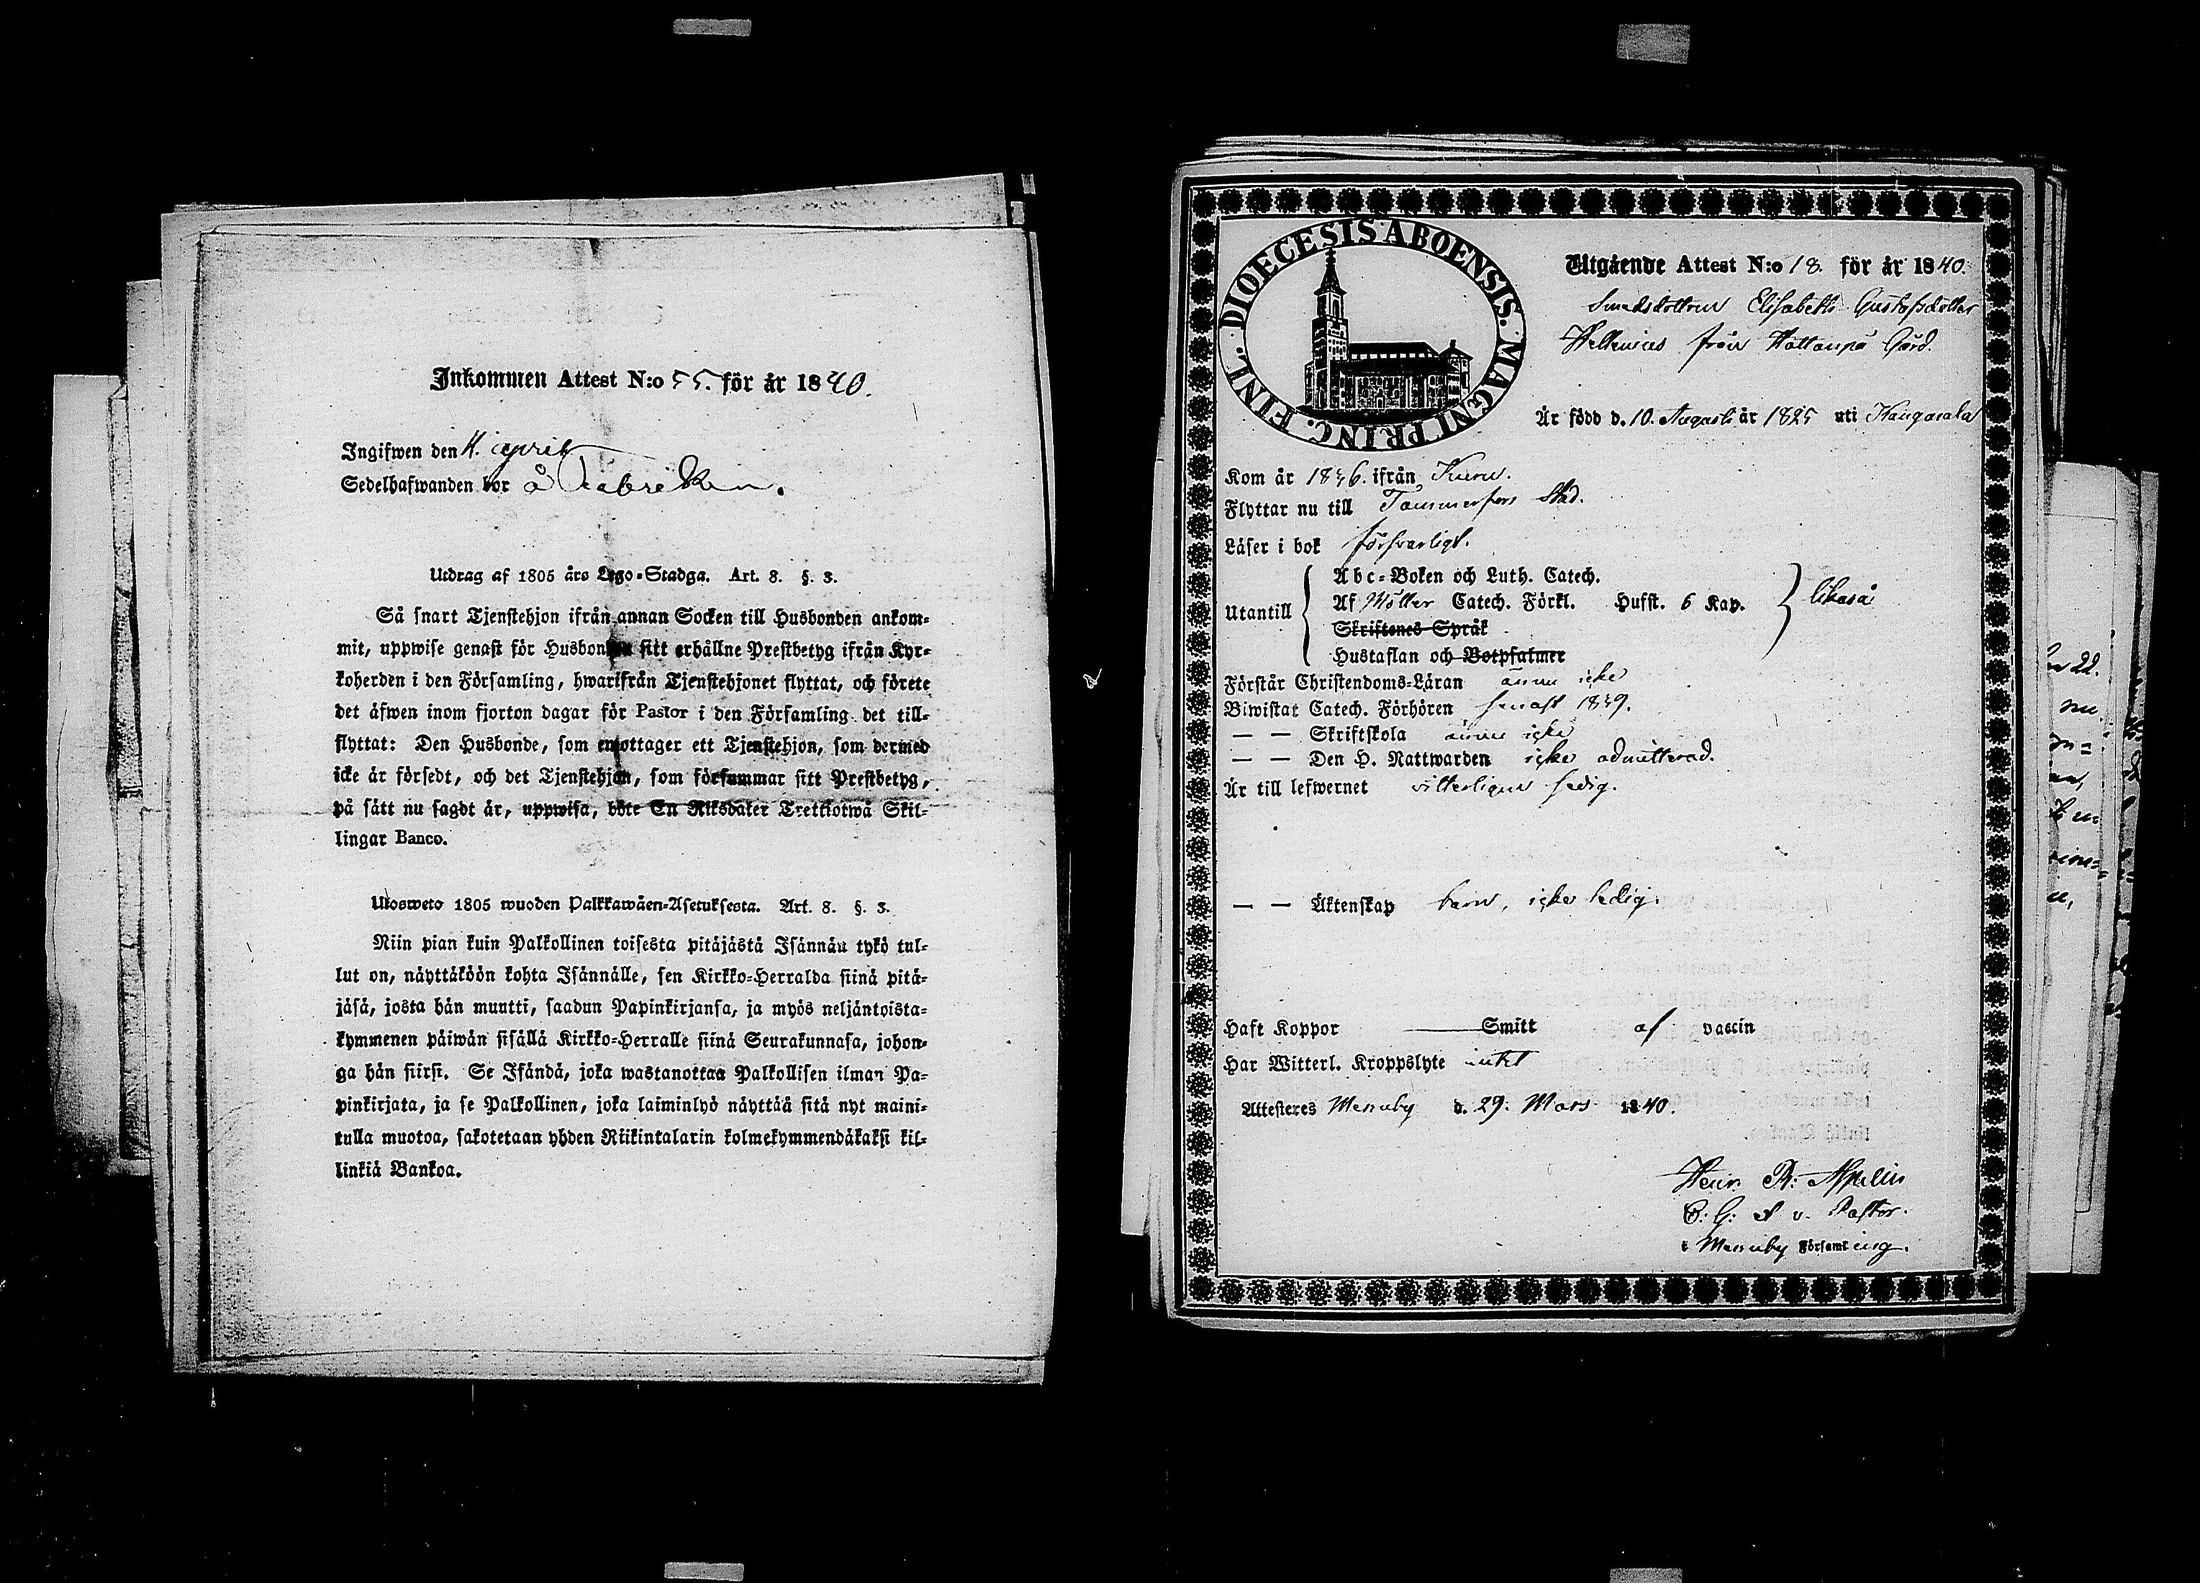 Inkommen Attest N:o 55. för år 1840.
Ingifwen den 4. april
Sedelhafwanden bor å Fabriken.
Utdrag af 1805 års Lego-Stadga. Art. 8. §. 3.
Så snart Tjenstehjon ifrån annan Socken till Husbonden ankom-
mit, uppwise genast för Husbonden sitt erhållne Prestbetyg ifrån Kyr-
koherden i den Församling, hwarifrån Tjenstehjonet flyttat, och förete
det äfwen inom fjorton dagar för Pastor i den Församling det till-
flyttat: Den Husbonde, som emottager ett Tjenstehjon, som dermed
icke är försedt, och det Tjenstehjon, som försummar sitt Prestbetyg,
på sätt nu sagdt är, uppwisa, böte En Riksdaler Trettiotwå Skil-
lingar Banco.
Ulosweto 1805 wuoden Palkkawäen-Asetuksesta. Art. 8. §. 3.
Niin pian kuin Palkollinen toisesta pitäjästä Isännän tykö tul-
lut on, näyttäköön kohta Isännälle, sen Kirkko-Herralda siinä pitä-
jäsä, josta hän muutti, saadun Papinkirjansa, ja myös neljäntoista-
kymmenen päiwän sisällä Kirkko-Herralle siinä Seurakunnasa, johon-
ga hän siirsi. Se Isändä, joka wastanottaa Palkollisen ilman Pa-
pinkirjata, ja se Palkollinen, joka laiminlyö näyttää sitä nyt maini-
tulla muotoa, sakotetaan yhden Riikintalarin kolmekymmendäkaksi kil-
linkiä Bankoa.
DIOECESIS ABOENSIS. MAGNI PRINC. FINL.
Utgående Attest N:o 18. för år 1840.
Smedsdottren Elisabeth Gustafsdotter
Hellenius från Hattanpä Gård.
Är född d. 10. Augusti år 1825 uti Kangasala
Kom år 1836. ifrån Kuru.
Flyttar nu till Tammerfors Stad.
Läser i bok försvarligt.
Utantill
Abc-Boken och Luth. Catech.
Af Möller Catech. Förkl. Husst. 6 Kap.
likaså
Skriftenes Språk
Hustaflan och Botpsalmer
Förstår Christendoms-Läran ännu icke
Biwistat Catech. Förhören senast 1839.
— — Skriftskola ännu icke
— — Den H. Nattwarden icke admitterad.
Är till lefwernet vitterligen sedig.
— — Äktenskap barn, icke ledig.
Haft Koppor Smitt af vaccin
Har Witterl. Kroppslyte intet
Attesteres Messuby d. 29. Mars 1840.
Henr.
v. Pastor.
i Messuby Församling.